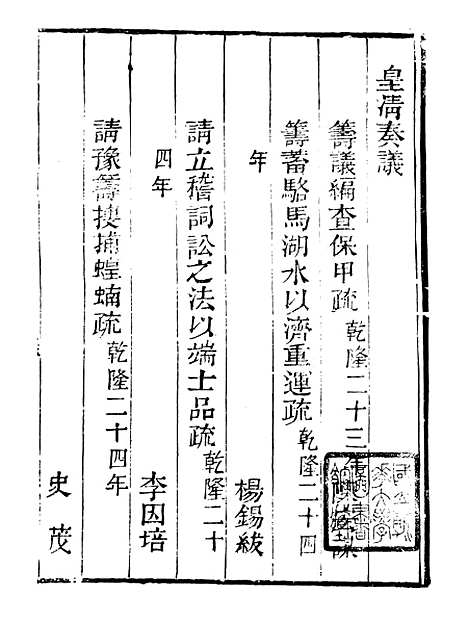 皇清奏議
籌議編查保甲疏 乾隆二十三
籌蓄駱馬湖水以濟重運疏 乾隆二十四
年 楊錫紱
請立稽詞訟之法以端士品疏 乾隆二十
四年 李因培
請豫籌撲捕蝗蝻疏 乾隆二十四年
史茂